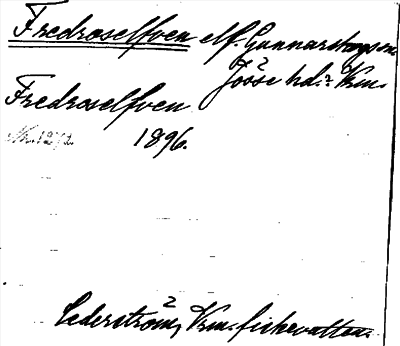 Fredroselfven elf. Gunnarskogs sn.
Jösse hd. Vrm.
Fredroselfven
1896.
Cederström, Vrm. fiskevatten.